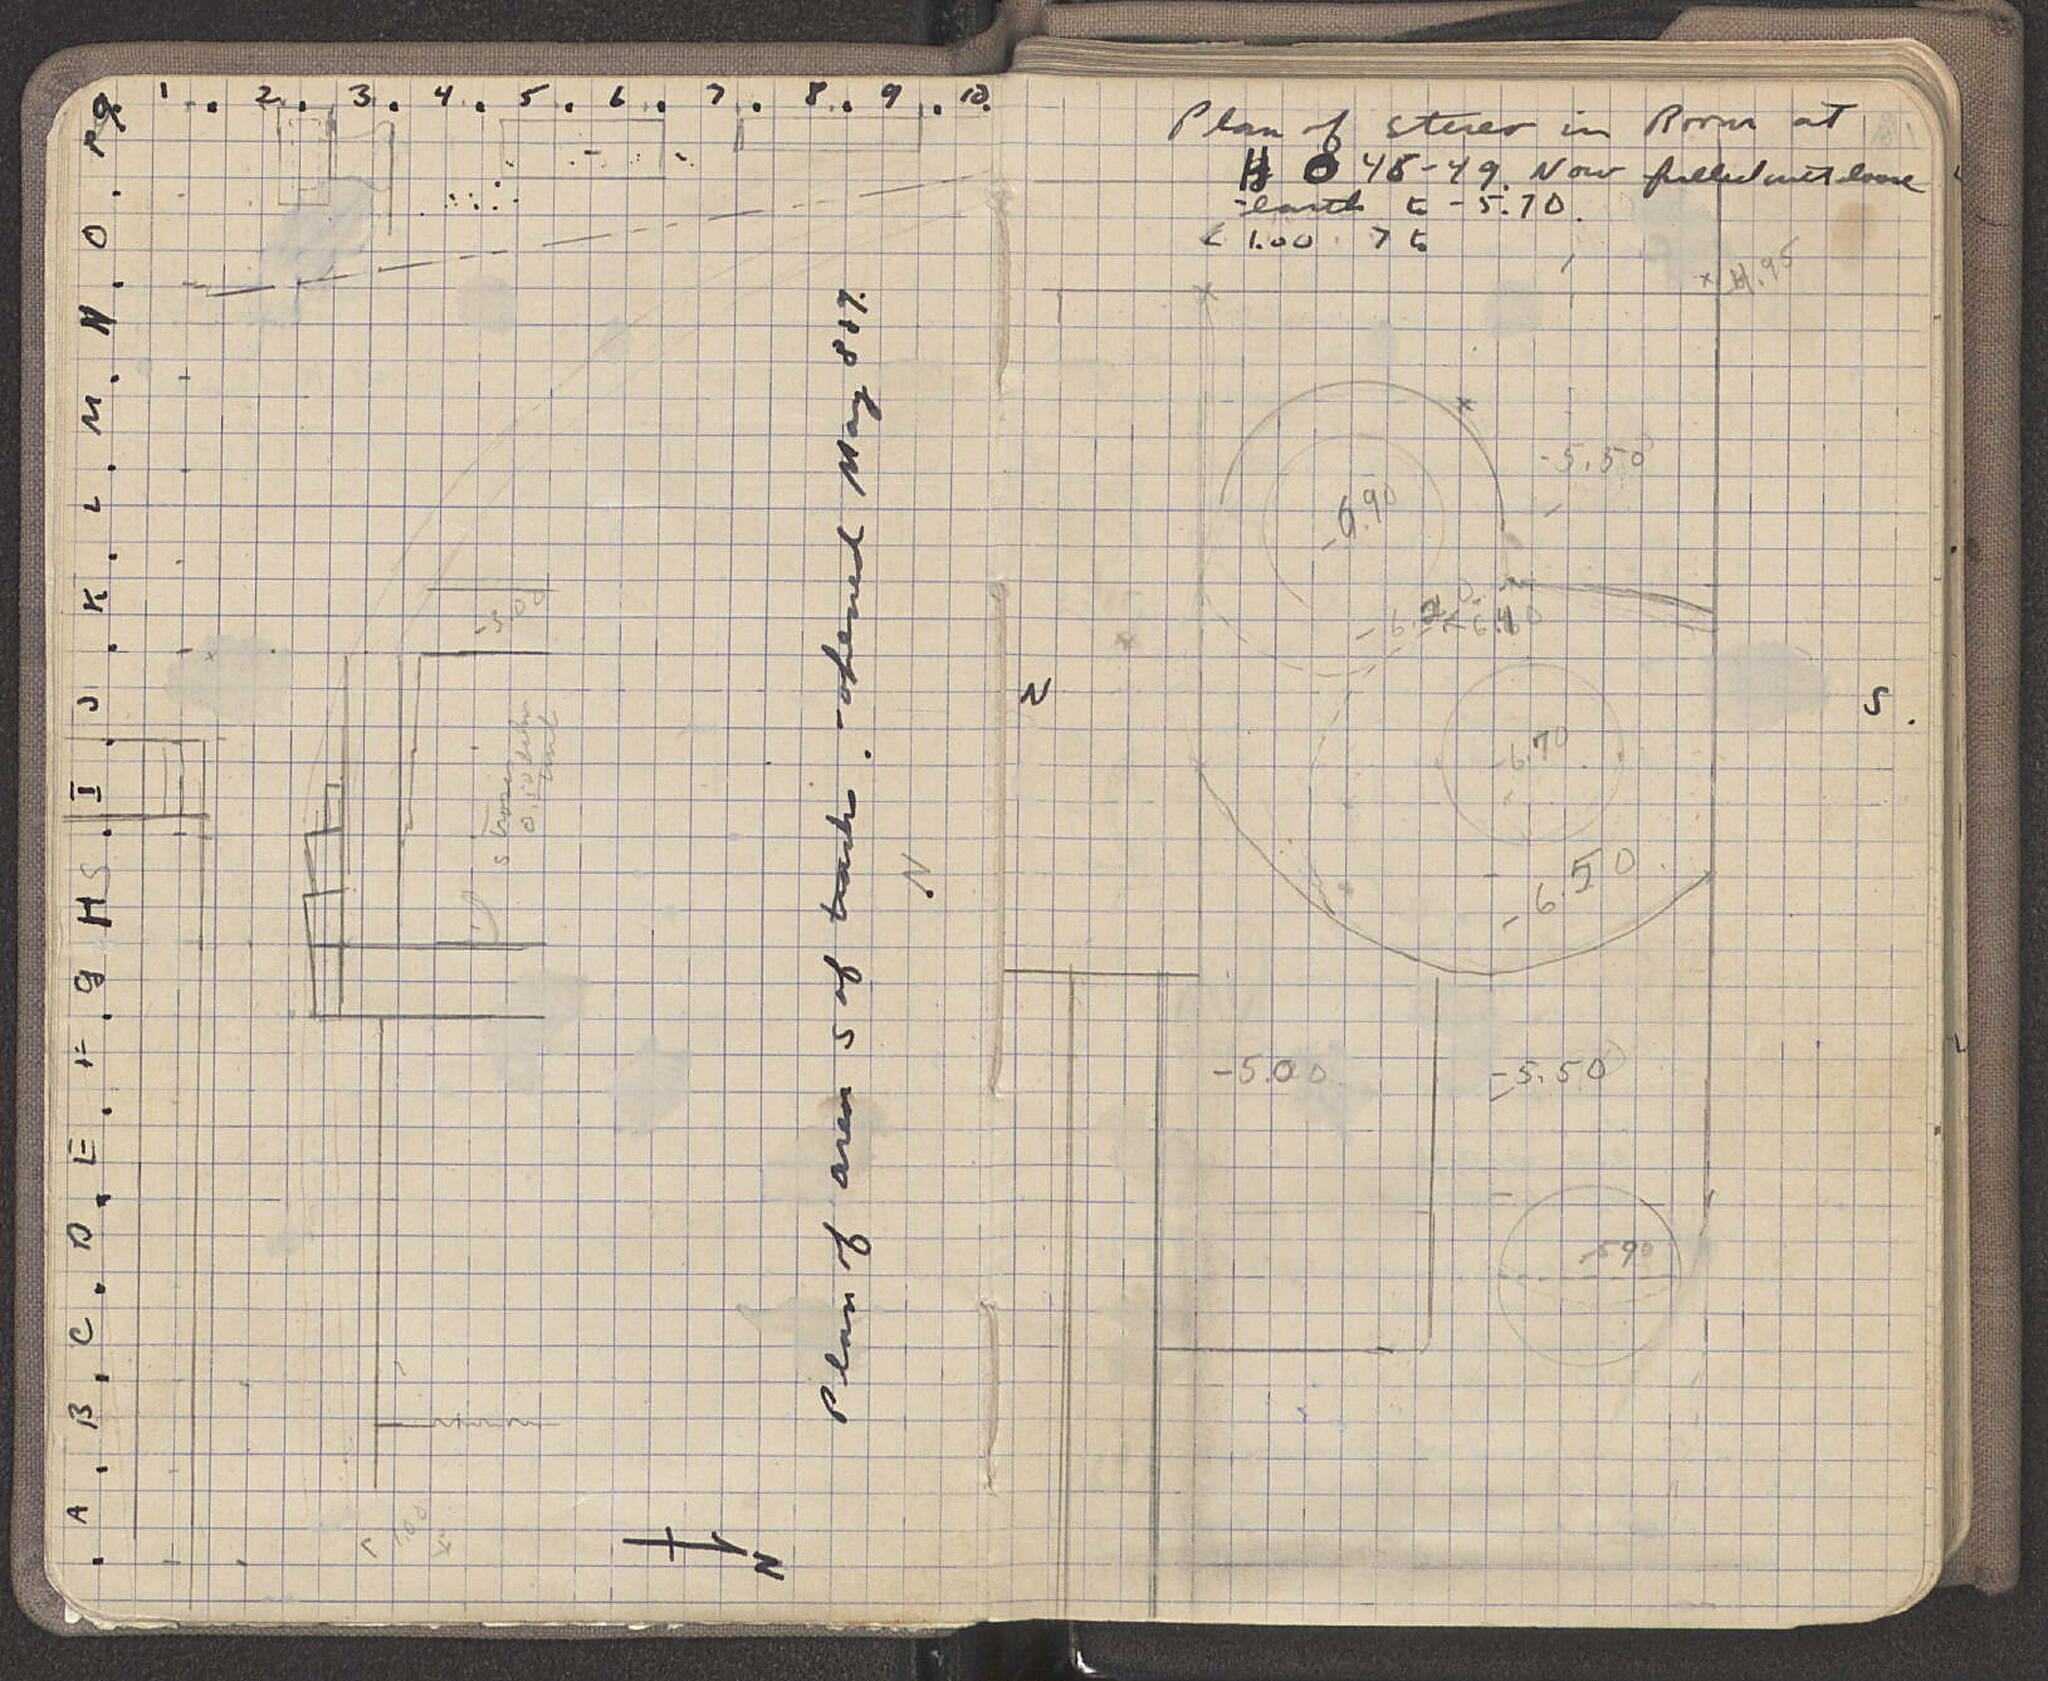 1 . 2 . 3 . 4 . 5 . 6 . 7 . 8 . 9 . 10.
g. P . O . N . M . L . K . J . I . H S . g . F . E . D . C . B . A .
-5.00
Plan of area S of tracks. - opened May 8
N
1.00
N
Plan of stereo in Room at
O 48-49. Now filled with loose
earth to -5.70.
< 1.00 > to
-5.50
-6.90
N
S.
-6.70
-6.50
-5.00
-5.50
-5.90